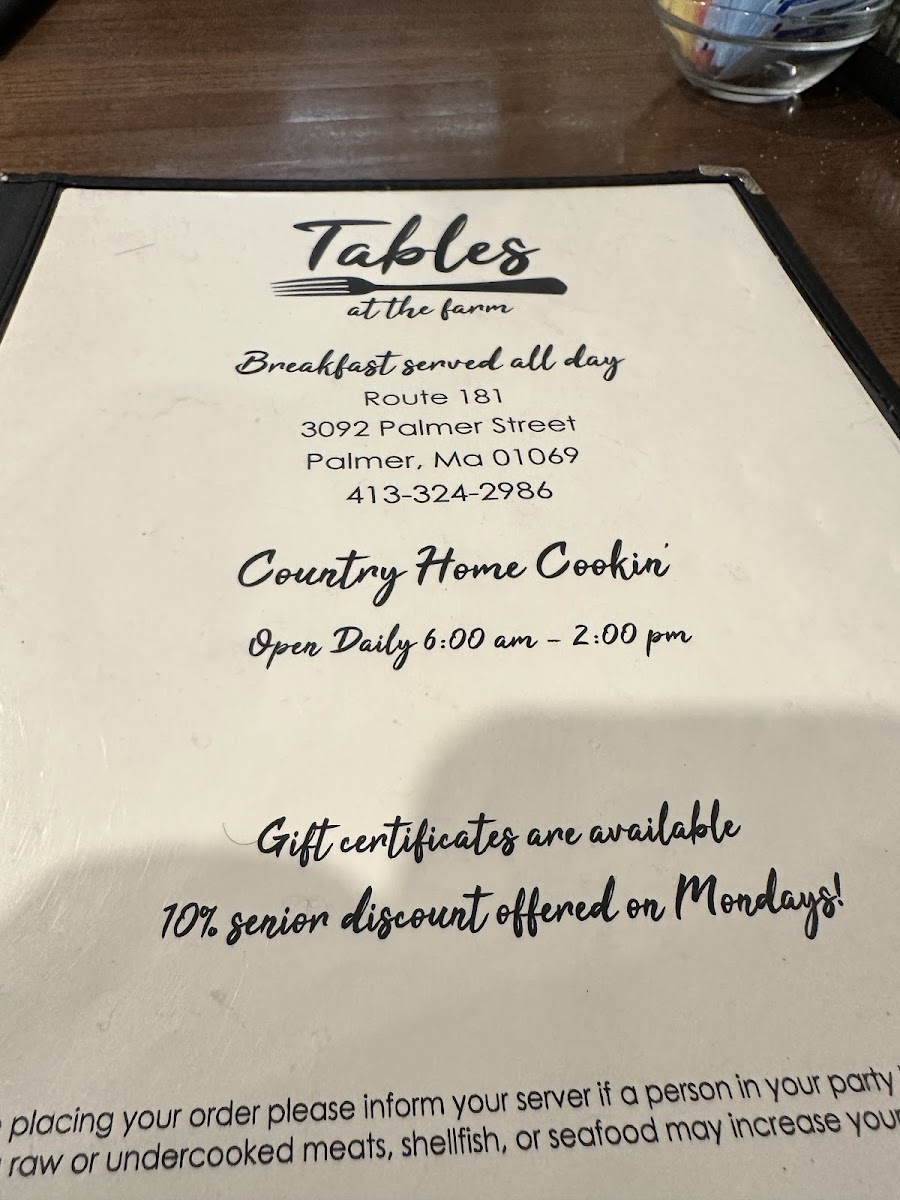 Tables
at the farm
Breakfast served all day
Route 181
3092 Palmer Street
Palmer, Ma 01069
413-324-2986
Country Home Cookin'
Open Daily 6:00 am - 2:00 pm
Gift certificates are available
10% senior discount offered on Mondays!
placing your order please inform your server if a person in your party
raw or undercooked meats, shellfish, or seafood may increase your